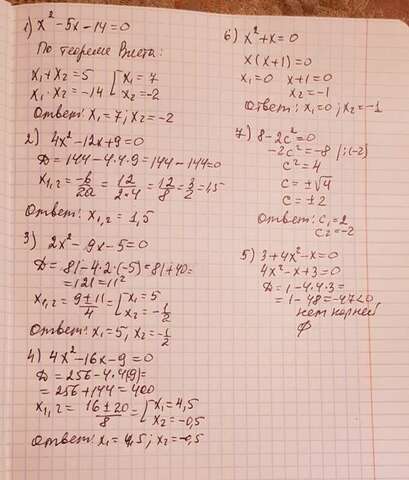 1) x² - 5x - 14 = 0
По теореме Виета:
x₁ + x₂ = 5 [x₁ = 7
x₁ · x₂ = -14 [x₂ = -2
Ответ: x₁ = 7; x₂ = -2
2) 4x² - 12x + 9 = 0
D = 144 - 4·4·9 = 144 - 144 = 0
x₁,₂ = -b/2a = 12/2·4 = 12/8 = 3/2 = 1,5
Ответ: x₁,₂ = 1,5
3) 2x² - 9x - 5 = 0
D = 81 - 4·2·(-5) = 81 + 40 =
= 121 = 11²
x₁,₂ = 9 ± 11/4 = [x₁ = 5
[x₂ = -1/2
Ответ: x₁ = 5, x₂ = -1/2
4) 4x² - 16x - 9 = 0
D = 256 - 4·4(9) =
= 256 + 144 = 400
x₁,₂ = 16 ± 20/8 = [x₁ = 4,5
[x₂ = -0,5
Ответ: x₁ = 4,5; x₂ = -0,5
6) x² + x = 0
x(x + 1) = 0
x₁ = 0 x + 1 = 0
x₂ = -1
Ответ: x₁ = 0; x₂ = -1
7) 8 - 2c² = 0
-2c² = -8 |:(-2)
c² = 4
c = ±√4
c = ±2
Ответ: c₁ = 2
c₂ = -2
5) 3 + 4x² - x = 0
4x² - x + 3 = 0
D = 1 - 4·4·3 =
= 1 - 48 = -47 < 0
нет корней
Ø